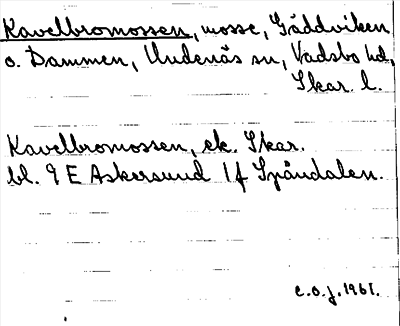 Kavelbromossen, mosse, Gäddviken
o. Dammen, Undenäs sn, Vadsbo hd,
Skar. l.
Kavelbromossen, ek. Skar.
bl. 9 E Askersund 1 f Spåndalen.
c.o.j. 1961.